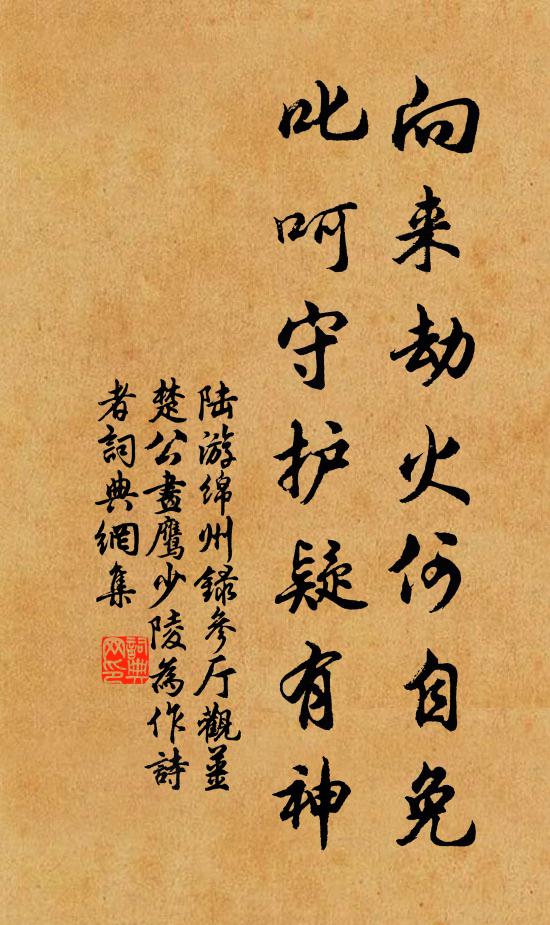 向来劫火何自免
叱呵守护疑有神
陆游绵州録参厅觀姜
楚公畫鹰少陵為作詩
者詞典網集
詞典
网印